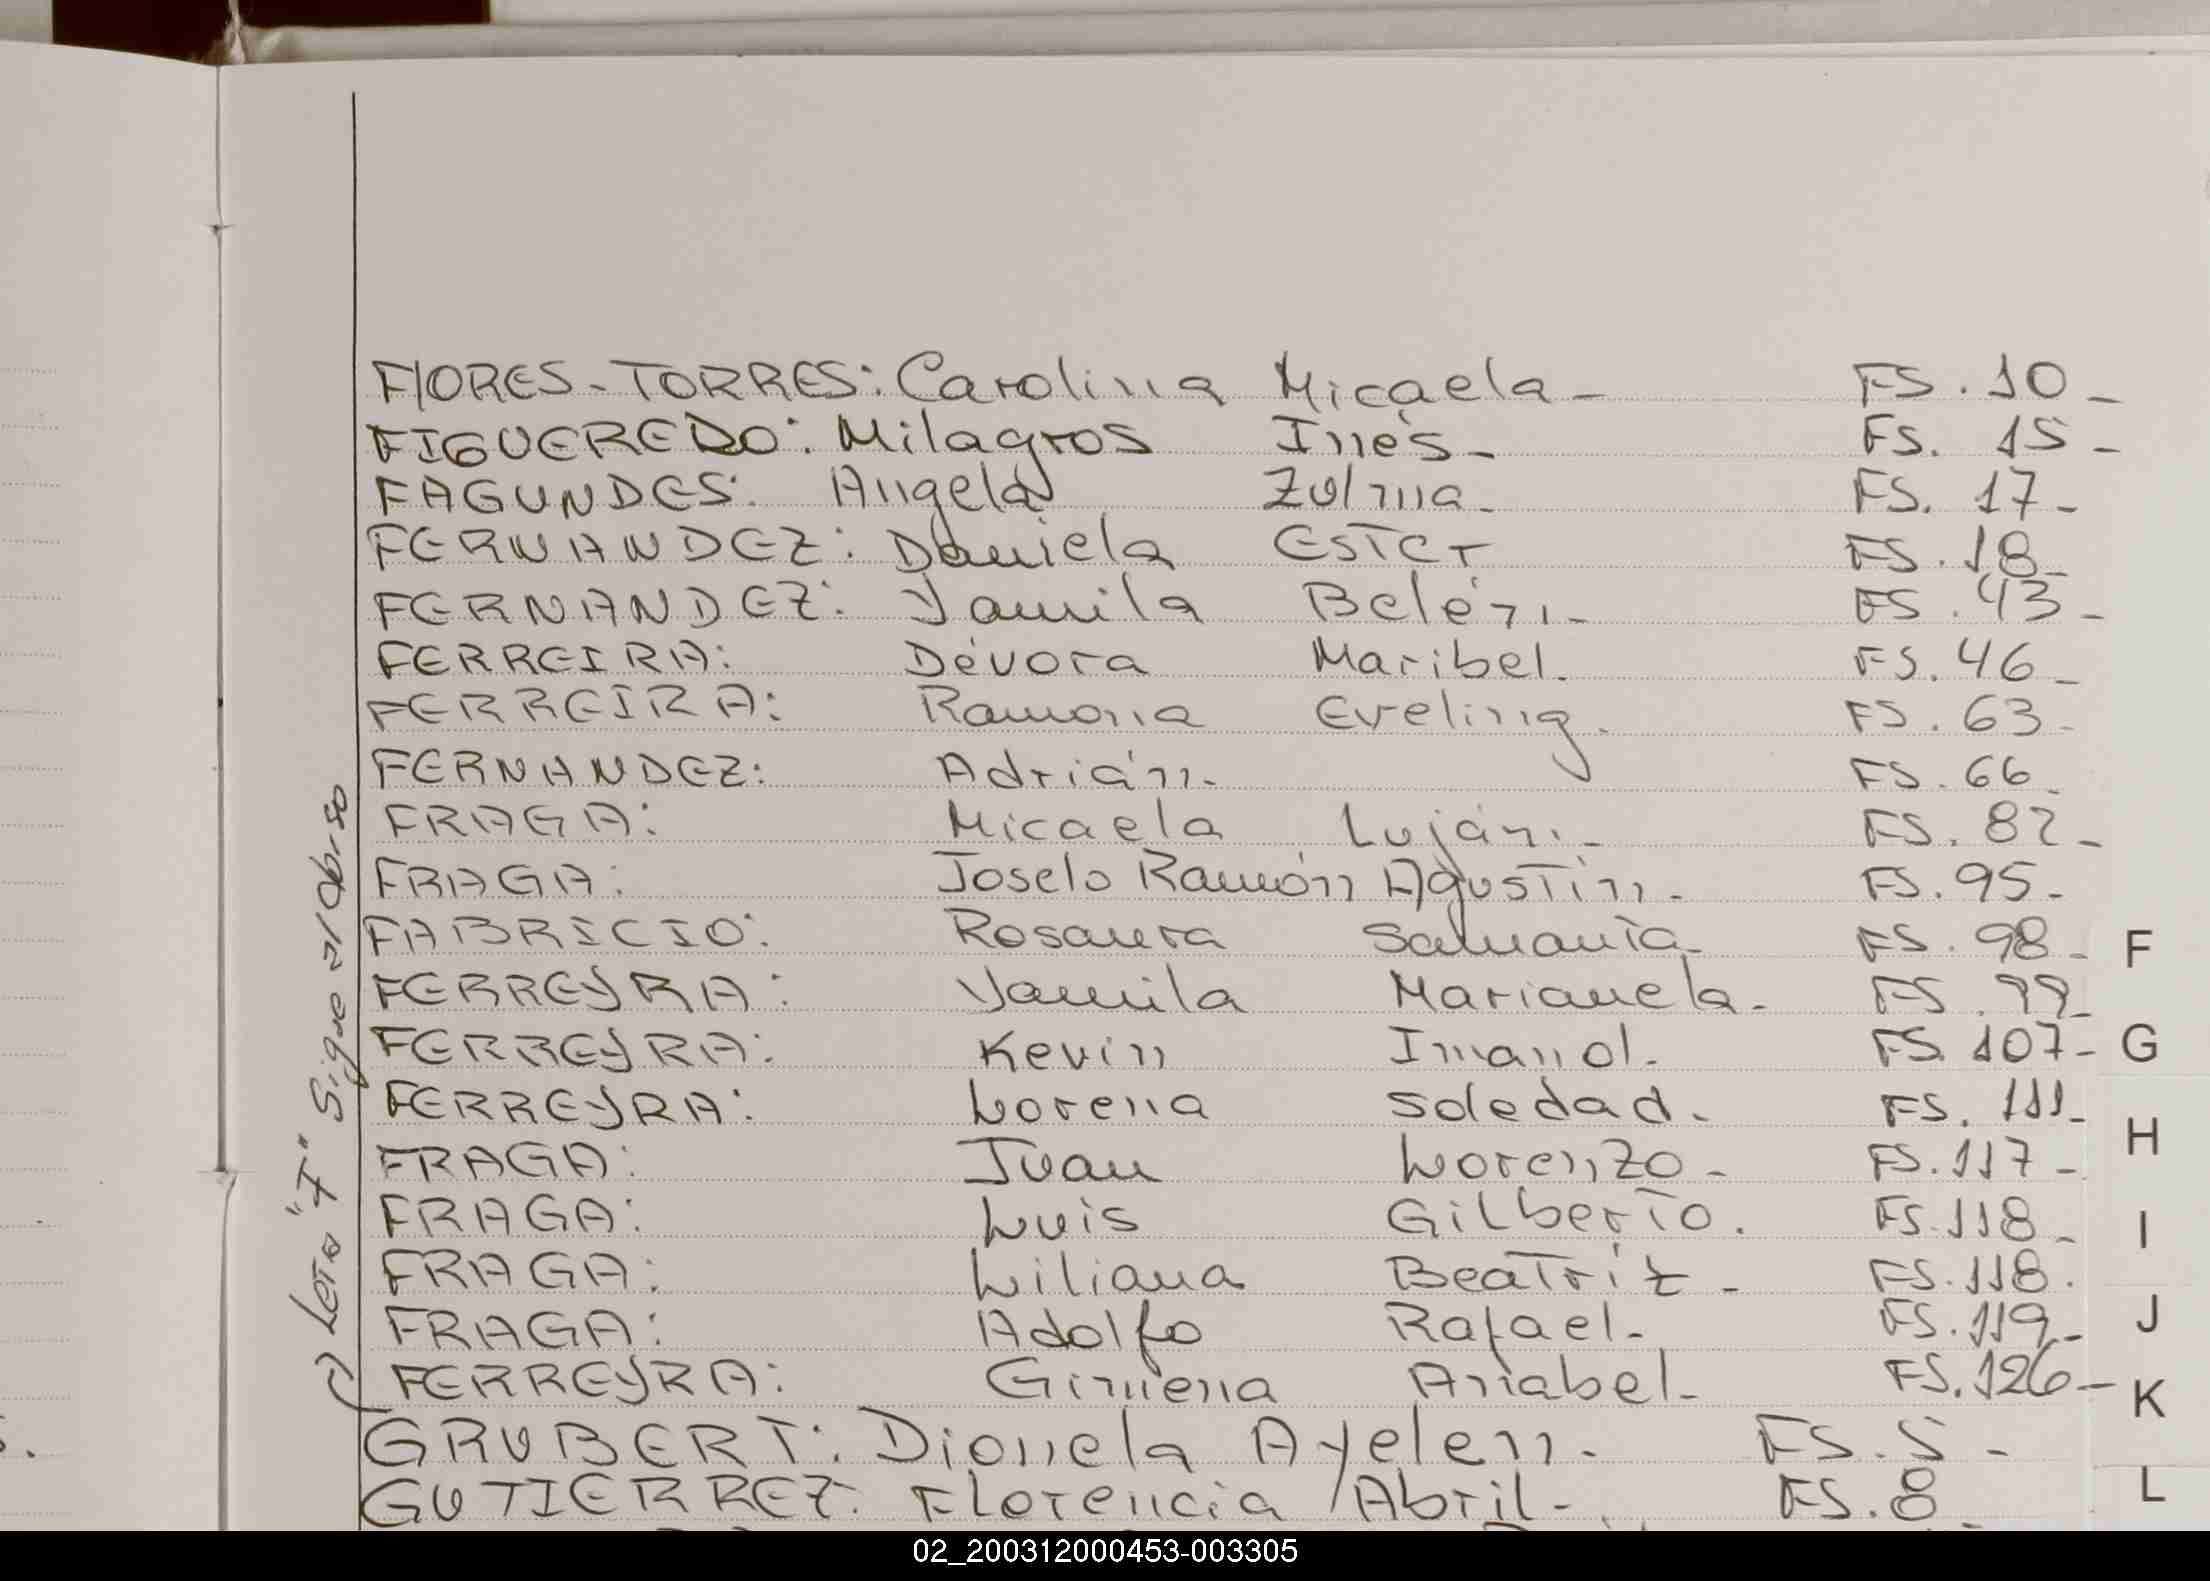 FLORES-TORRES: Carolina Micaela- FS. 10-
FIGUEREDO: Milagros Inés- FS. 15-
FAGUNDES: Angela Zulma- FS. 17-
FERNANDEZ: Daniela Ester FS. 18-
FERNANDEZ: Yamila Belén- FS. 43-
FERREIRA: Dévora Maribel. FS. 46-
FERREIRA: Ramona Eveling. FS. 63-
FERNANDEZ: Adrián- FS. 66-
FRAGA: Micaela Luján- FS. 82-
FRAGA: Joselo Ramón Agustín- FS. 95-
FABRICIO: Rosaura Samanta- FS. 98-
FERREYRA: Yamila Marianela- FS. 99-
FERREYRA: Kevin Imanol- FS. 107-
FERREYRA: Lorena Soledad- FS. 111-
FRAGA: Juan Lorenzo- FS. 117-
FRAGA: Luis Gilberto. FS. 118-
FRAGA: Liliana Beatriz- FS. 118.
FRAGA: Adolfo Rafael- FS. 119-
FERREYRA: Gimena Anabel- FS. 126-
GRUBERT: Dionela Ayelen- FS. 5-
GUTIERREZ: Florencia Abril- FS. 8-
Letra "F" Sigue al
F
G
H
I
J
K
L
02_200312000453-003305